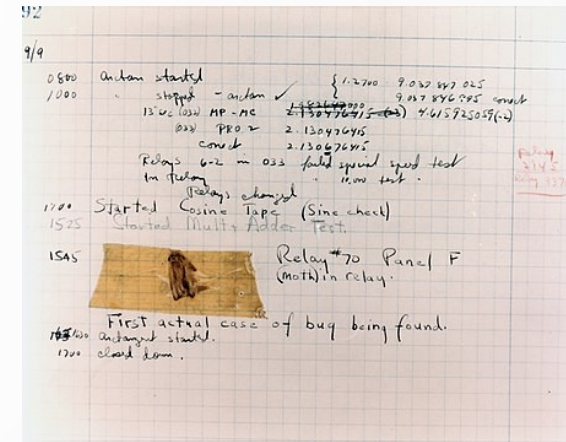 92
9/9
0800 Antan started
1000 " stopped - antan ✓ { 1.2700 9.037 847 025
9.037 846 995 correct
13"uc (032) MP - MC 2.130476415 4.615925059(-2)
(033) PRO 2 2.130476415
correct 2.130676415
Relays 6-2 in 033 failed special speed test
in relay " 11,000 test.
Relays changed
Relay
2145
Relay 337
1100 Started Cosine Tape (Sine check)
1525 Started Mult+ Adder Test.
1545 Relay #70 Panel F
(moth) in relay.
First actual case of bug being found.
1630 antangent started.
1700 closed down.